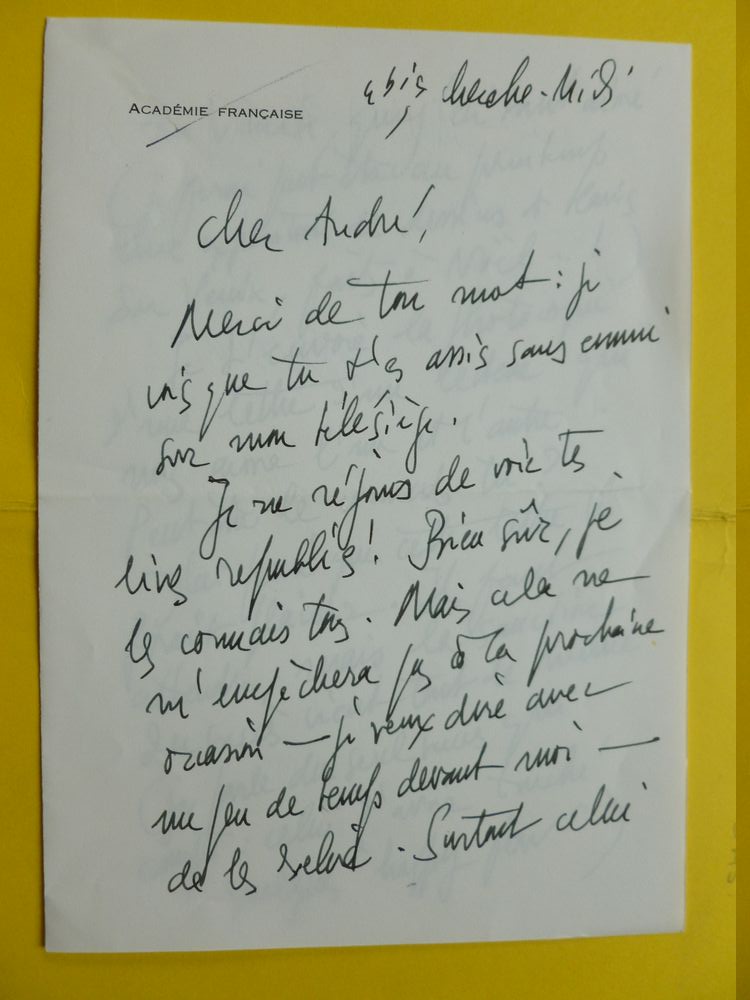 ACADÉMIE FRANÇAISE
bis Cherche-Midi
Cher André,
Merci de ton mot : je
vois que tu t'es assis sans ennui
sur mon télésiège.
Je me réjouis de voir tes
livres republiés ! Bien sûr, je
les connais tous. Mais cela ne
m'empêchera pas à la prochaine
occasion — je veux dire avec
un peu de temps devant moi —
de les relire. Surtout celui